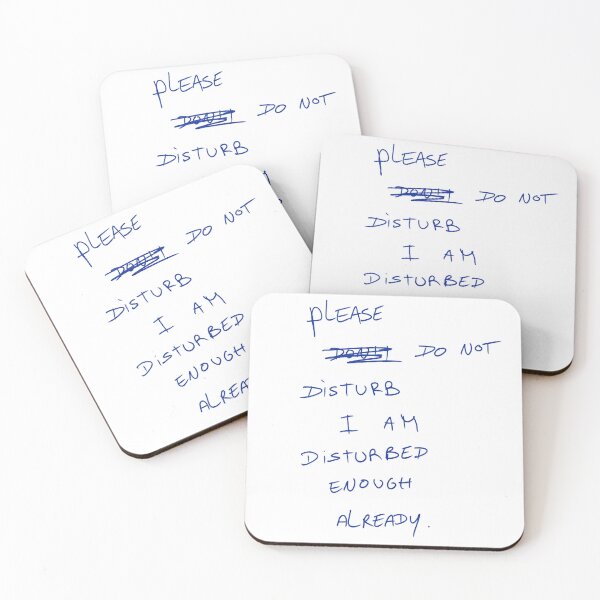 PLEASE
DON'T DO NOT
DISTURB
PLEASE
DON'T DO NOT
DISTURB
I AM
DISTURBED
PLEASE
DON'T DO NOT
DISTURB
I AM
DISTURBED
ENOUGH
PLEASE
DON'T DO NOT
DISTURB
I AM
DISTURBED
ENOUGH
ALREADY.